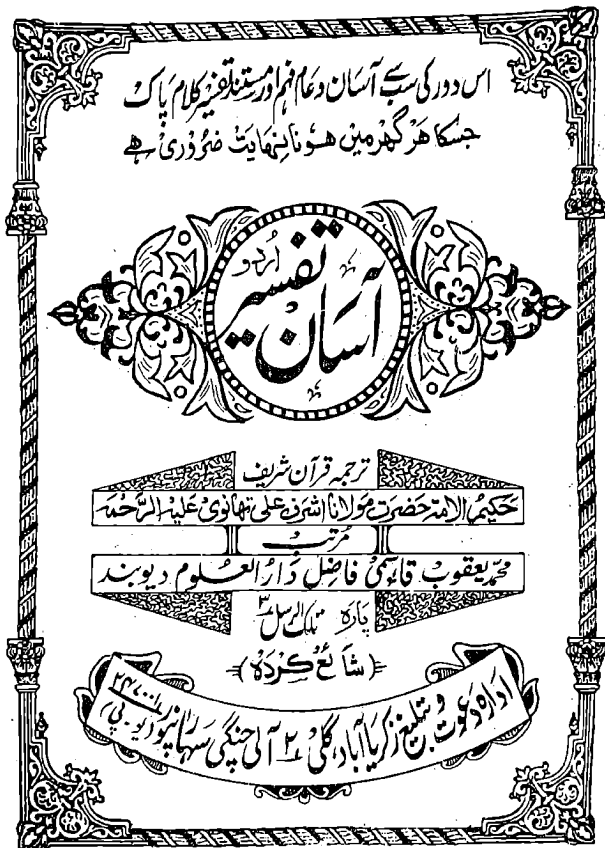 اس دور کی سب سے آسان و عام فہم اور مستند تفسیر کلام پاک
جسکا ہر گھر میں ہونا نہایت ضروری ہے
آسان تفسیر اردو
ترجمہ قرآن شریف
حکیم الامۃ حضرت مولانا اشرف علی تھانوی علیہ الرحمہ
مرتب
محمد یعقوب قاسمی فاضل دار العلوم دیوبند
پارہ تلک الرسل ۳
(شائع کردہ)
ادارہ دعوت و تبلیغ زکریا آباد، گلی ۲ آلی چنگی سہارنپور (یو۔پی) ۲۴۷۰۰۱